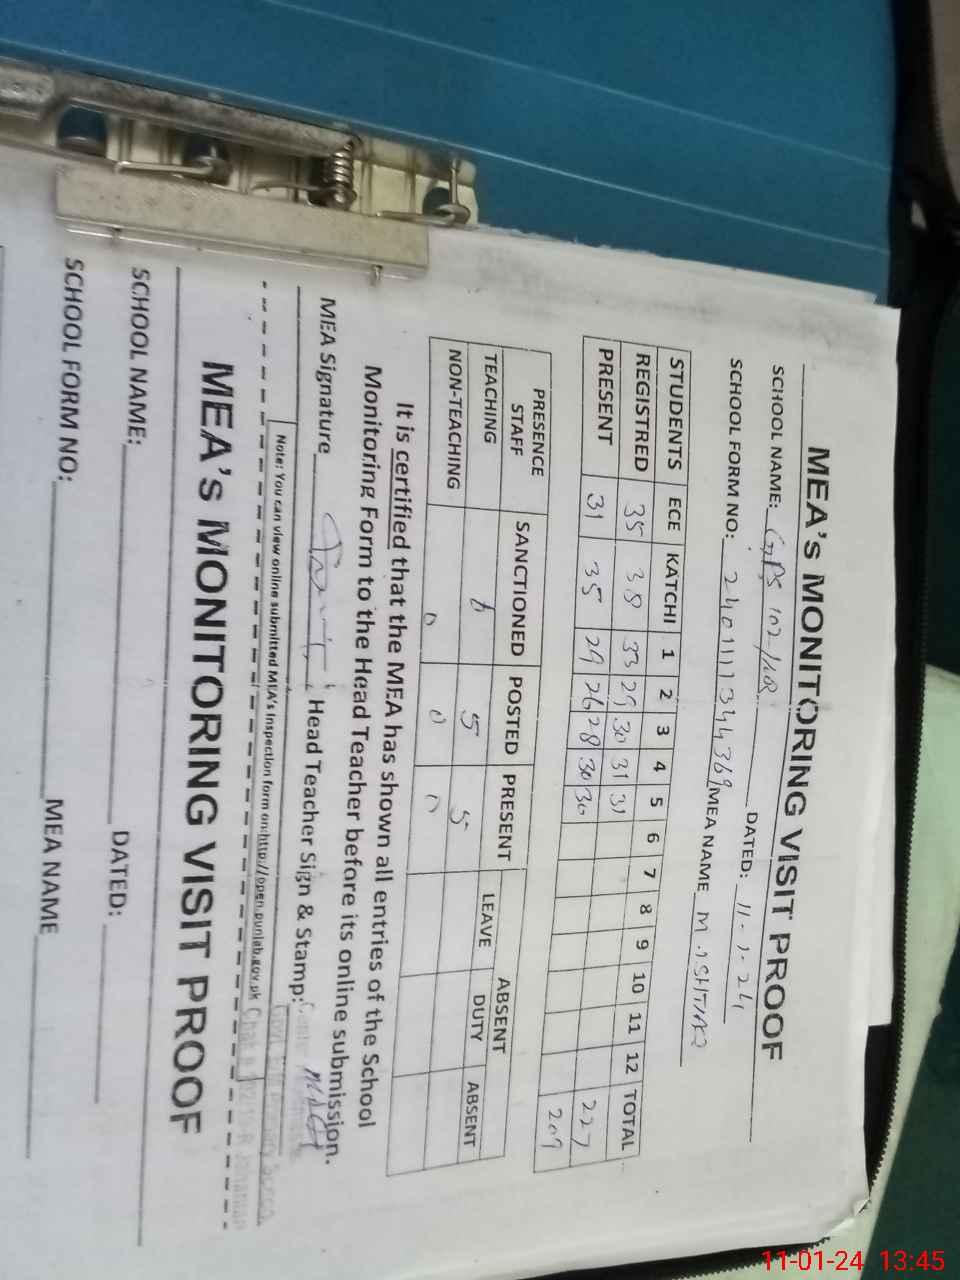 MEA's MONITORING VISIT PROOF
SCHOOL NAME: GPS 102/10R DATED: 11-1-24
SCHOOL FORM NO: MEA NAME M. ISHTIAQ
STUDENTS ECE KATCHI 1 2 3 4 5 6 7 8 9 10 11 12 TOTAL
REGISTRED 35 38 33 29 30 31 31 227
PRESENT 31 35 29 26 28 30 30 209
PRESENCE STAFF SANCTIONED POSTED PRESENT ABSENT
LEAVE DUTY ABSENT
TEACHING 6 5 5
NON-TEACHING 0 0 0
It is certified that the MEA has shown all entries of the School
Monitoring Form to the Head Teacher before its online submission.
MEA Signature Head Teacher Sign & Stamp:
Note: You can view online submitted MEA's Inspection form on:http://open.punjab.gov.pk
MEA's MONITORING VISIT PROOF
SCHOOL NAME: DATED:
SCHOOL FORM NO: MEA NAME
11-01-24 13:45